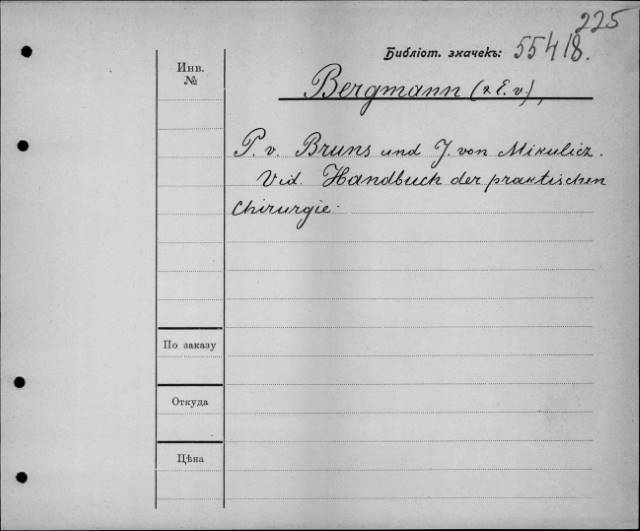 225
Библіот. значекъ: 55418.
Инв.
№
Bergmann (E. v.),
P. v. Bruns und J. von Mikulicz.
Vid. Handbuch der praktischen
Chirurgie.
По заказу
Откуда
Цѣна